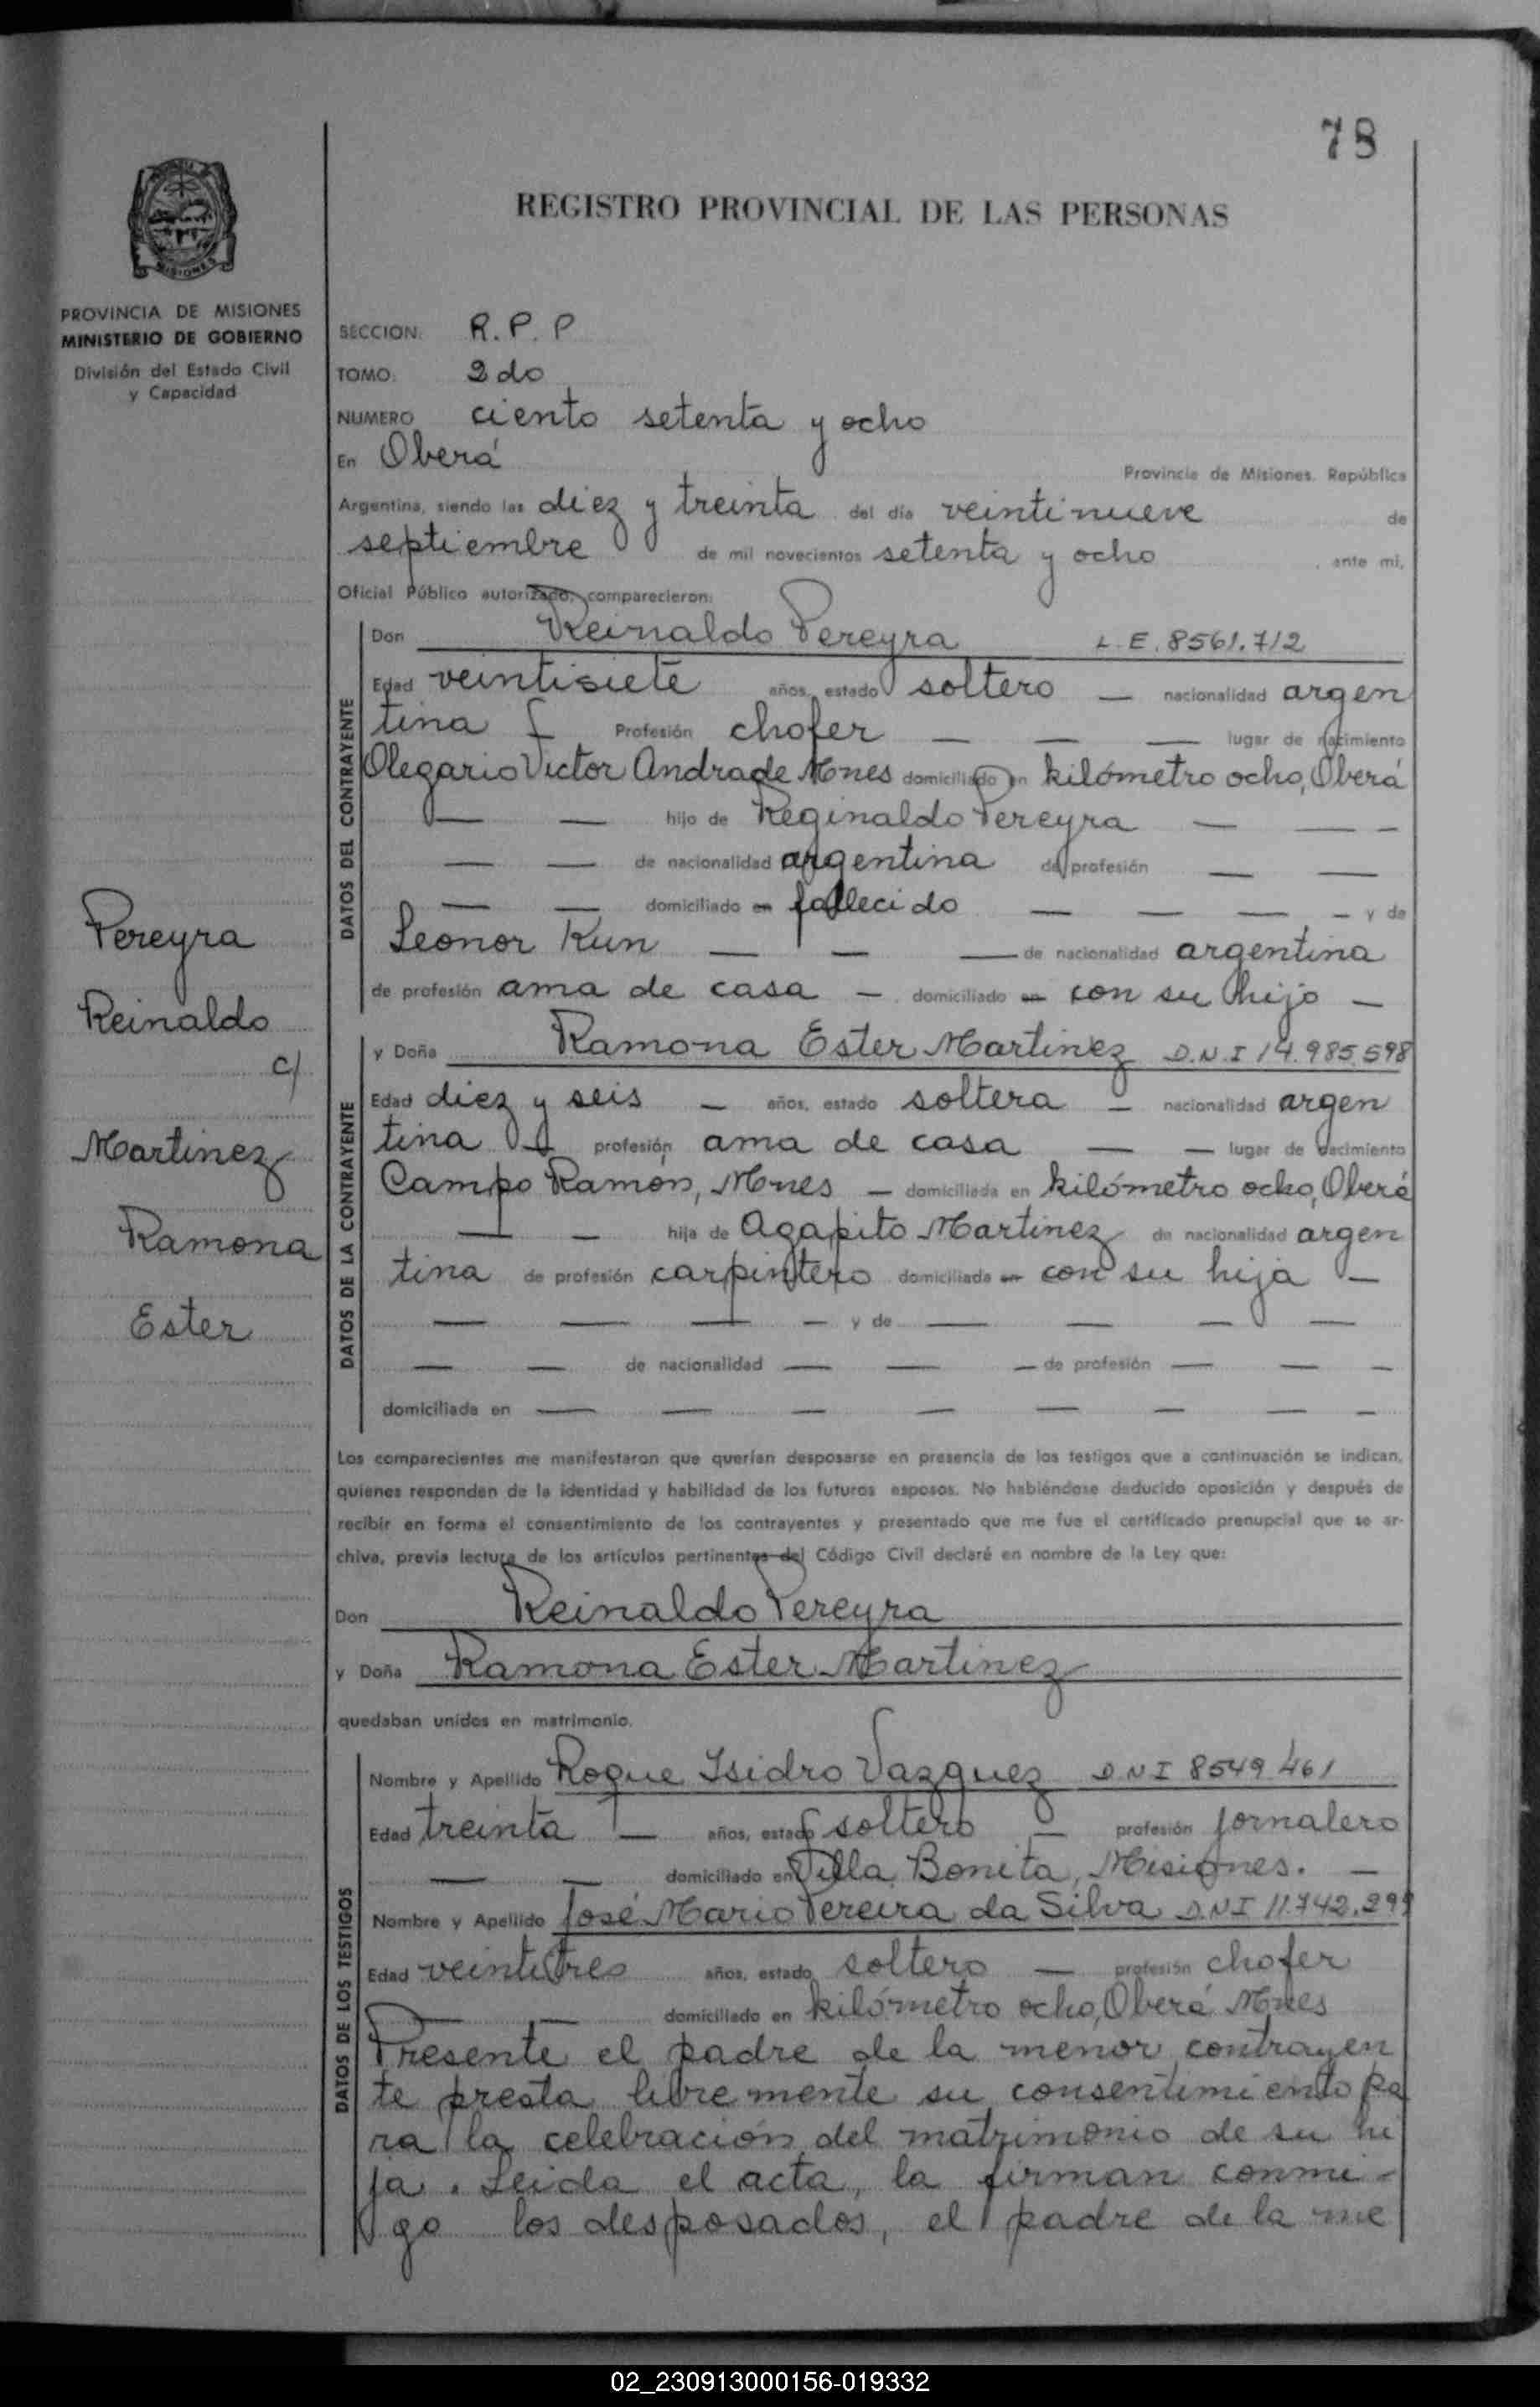 78
REGISTRO PROVINCIAL DE LAS PERSONAS
MISIONES
PROVINCIA DE MISIONES
MINISTERIO DE GOBIERNO
División del Estado Civil
y Capacidad
SECCION: R. P. P
TOMO: 2do
NUMERO ciento setenta y ocho
En Oberá
Provincia de Misiones. República
Argentina, siendo las diez y treinta del día veintinueve de
septiembre de mil novecientos setenta y ocho, ante mi,
Oficial Público autorizado, comparecieron:
DATOS DEL CONTRAYENTE
Don Reinaldo Pereyra L.E. 8561.712
Edad veintisiete años, estado soltero — nacionalidad argen
tina — Profesión chofer — — — lugar de nacimiento
Olegario Victor Andrade Mnes domiciliado en kilómetro ocho, Oberá
— — hijo de Reginaldo Pereyra — — —
— — de nacionalidad argentina de profesión — —
— — domiciliado en fallecido — — — — y de
Leonor Kun — — — de nacionalidad argentina
de profesión ama de casa — domiciliado en con su hijo —
Pereyra
Reinaldo
c/
Martinez
Ramona
Ester
DATOS DE LA CONTRAYENTE
y Doña Ramona Ester Martinez D.N.I 14.985.598
Edad diez y seis — años, estado soltera — nacionalidad argen
tina — profesión ama de casa — — lugar de nacimiento
Campo Ramón, Mnes — domiciliada en kilómetro ocho, Oberá
— — hija de Agapito Martinez de nacionalidad argen
tina de profesión carpintero domiciliada en con su hija —
— — — — y de — — — —
— — de nacionalidad — — — de profesión — — —
domiciliada en — — — — — — — —
Los comparecientes me manifestaron que querían desposarse en presencia de los testigos que a continuación se indican,
quienes responden de la identidad y habilidad de los futuros esposos. No habiéndose deducido oposición y después de
recibir en forma el consentimiento de los contrayentes y presentado que me fue el certificado prenupcial que se ar-
chiva, previa lectura de los artículos pertinentes del Código Civil declaré en nombre de la Ley que:
Don Reinaldo Pereyra
y Doña Ramona Ester Martinez
quedaban unidos en matrimonio.
DATOS DE LOS TESTIGOS
Nombre y Apellido Roque Isidro Vazquez D N I 8549461
Edad treinta — años, estado soltero — profesión jornalero
— — domiciliado en Villa Bonita, Misiones. —
Nombre y Apellido José Mario Pereira da Silva D.N.I 11.742.299
Edad veintitres años, estado soltero — profesión chofer
— — domiciliado en kilómetro ocho, Oberá Mnes
Presente el padre de la menor contrayen
te presta libremente su consentimiento pa
ra la celebración del matrimonio de su hi
ja. Leida el acta, la firman conmi-
go los desposados, el padre de la me
02_230913000156-019332